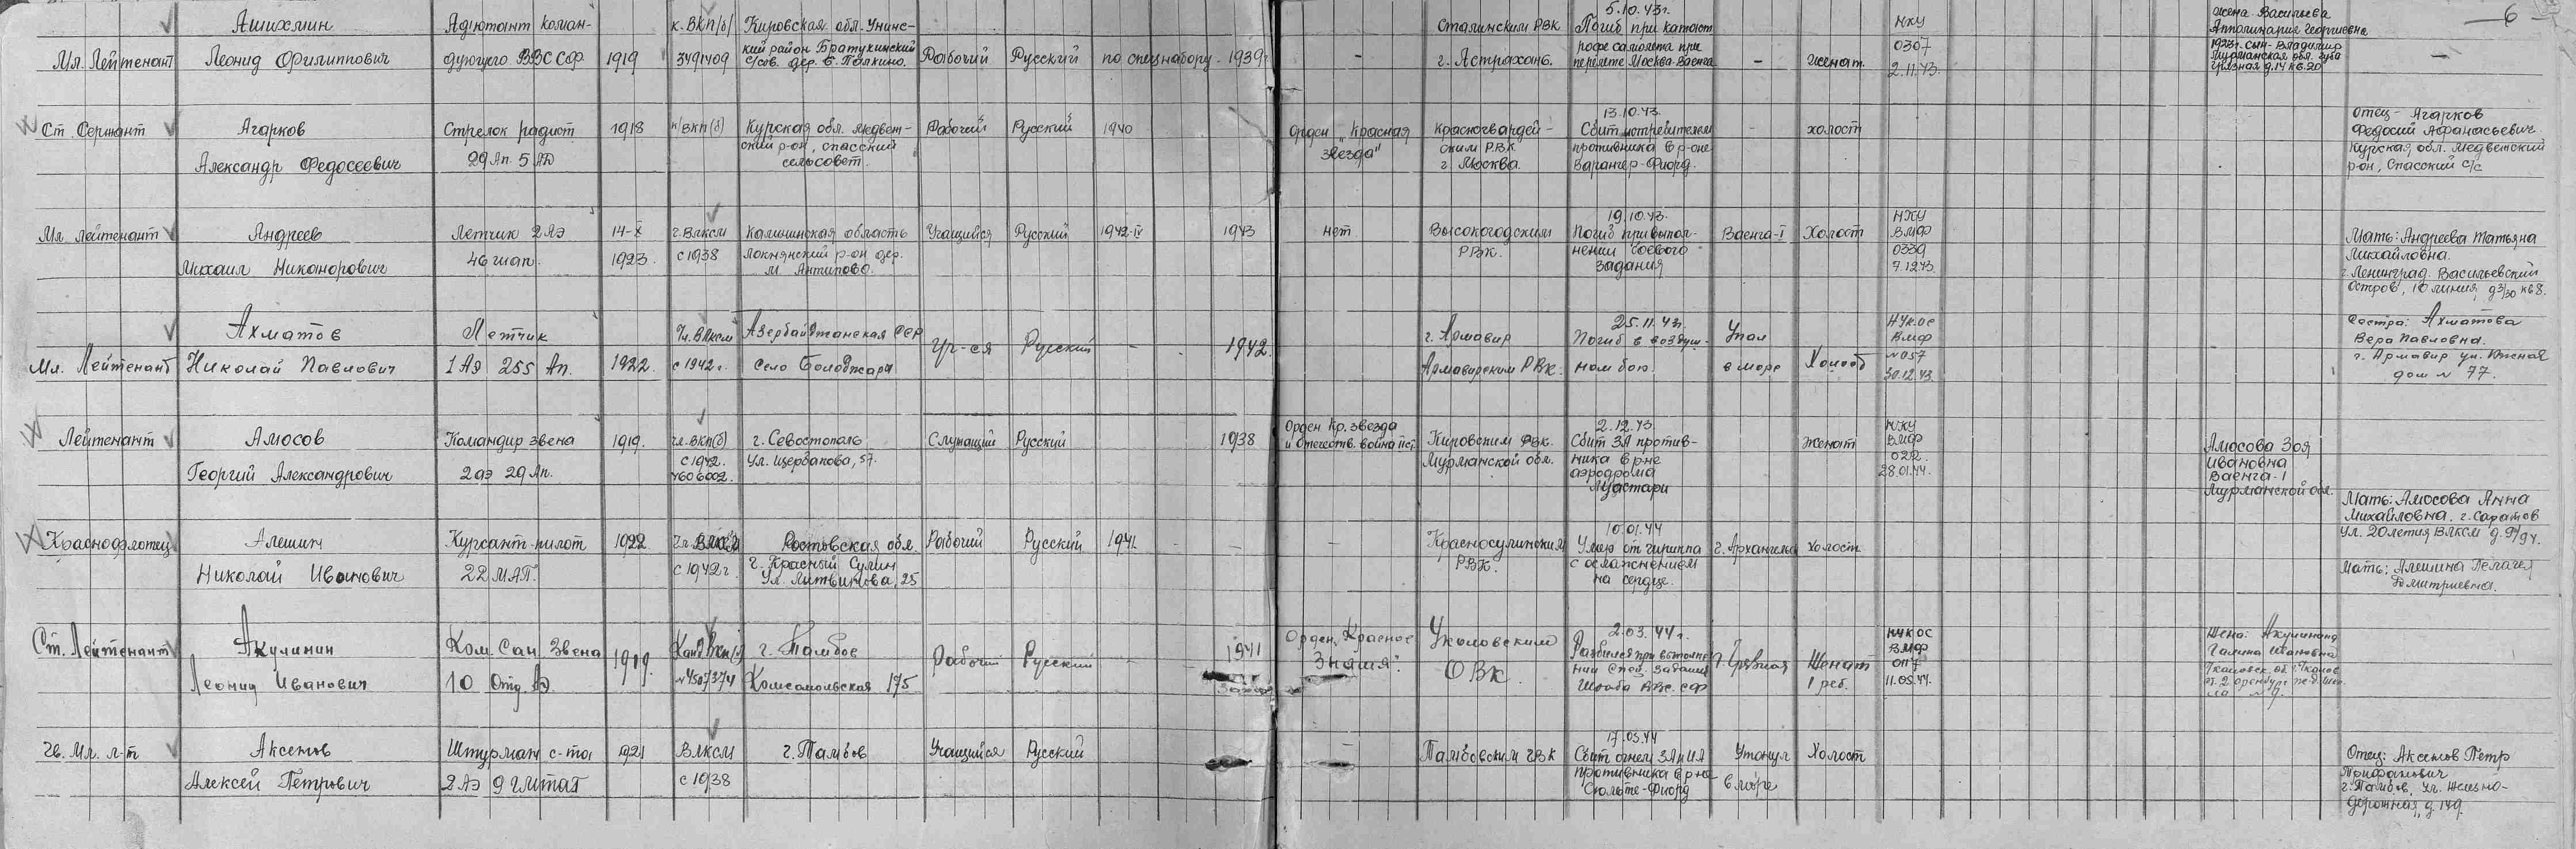 6
Мл. Лейтенант
Ашихмин
Леонид Филиппович
Адъютант коман-
дующего ВВС СФ
1919
к. ВКП/б/
3491409
Кировская обл. Унинс-
кий район Братухинский
с/сов. дер. Б. Полкино.
Рабочий
Русский
по спецнабору
1939г
-
Сталинским РВК
г. Астрахань.
5.10.43г.
Погиб при катаст
рофе самолета при
перелете Москва-Ваенга
-
женат.
НХУ
0307
2.11.43.
жена Васильева
Апполинария Георгиевна
1923г. сын-Владимир
Мурманская обл. губа
Грязная д.14 кв.20
-
Ст. Сержант
Агарков
Александр Федосеевич
Стрелок радист
29 Ап. 5 АД
1918
к/ВКП(б)
Курская обл. Медвен-
ский р-он, Спасский
сельсовет.
Рабочий
Русский
1940
Орден „Красная
звезда"
Красногвардей-
ским РВК
г. Москва.
13.10.43.
Сбит истребителем
противника в р-оне
Варангер-Фиорд.
-
холост
Отец - Агарков
Федосий Афанасьевич
Курская обл. Медвенский
р-он, Спасский с/с
Мл. Лейтенант
Андреев
Михаил Никанорович
Летчик 2 АЭ
46 шап.
14-X
1923.
г. ВЛКСМ
с 1938
Калининская область
Локнянский р-он дер.
М. Антипово.
Учащийся
Русский
1942-IV
1943
нет
Высокогодским
РВК.
19.10.43.
Погиб при выпол-
нении боевого
задания
Ваенга-I
Холост
НХУ
ВМФ
0339
7.12.43.
Мать: Андреева Татьяна
Михайловна.
г. Ленинград. Васильевский
остров, 10 линия, д 3/30 кв 8.
Мл. Лейтенант
Ахматов
Николай Павлович
Летчик
1 АЭ 255 Ап.
1922.
Чл. ВЛКСМ
с 1942 г.
Азербайджанская ССР
село Баладжары
Уч-ся
Русский
-
1942.
г. Армавир
Армавирским РВК.
25.11.43г.
Погиб в воздуш-
ном бою.
Упал
в море
Холост
НУК ОС
ВМФ
№057
30.12.43.
Сестра: Ахматова
Вера Павловна.
г. Армавир ул. Южная
дом № 77.
Лейтенант
Амосов
Георгий Александрович
Командир звена
2 аэ 29 Ап.
1919.
чл. ВКП(б)
с 1942.
4606002.
г. Севастополь
Ул. Щербакова, 57.
Служащий
Русский
1938
Орден Кр. звезда
и Отечеств. война IIст.
Кировским РВК.
Мурманской обл.
2.12.43.
Сбит ЗА против-
ника в р-не
аэродрома
Луостари
женат
НХУ
ВМФ
022
28.01.44.
Амосова Зоя
Ивановна
Ваенга-1
Мурманской обл.
Мать: Амосова Анна
Михайловна. г. Саратов
Ул. 20 летия ВЛКСМ д. 97/94.
Краснофлотец
Алешин
Николай Иванович
Курсант-пилот
22 МАП.
1922
Чл. ВЛКСМ
с 1942 г
Ростовская обл.
г. Красный Сулин
Ул. Литвинова, 25
Рабочий
Русский
1941
-
-
-
Красносулинским
РВК.
10.01.44
Умер от гриппа
с осложнением
на сердце.
г. Архангельск
холост
Мать: Алешина Пелагея
Дмитриевна.
Ст. Лейтенант
Акулинин
Леонид Иванович
Ком. Сан Звена
10 Отд. АЭ
1919.
Канд ВКП/б/
№4507374
г. Тамбов
Комсомольская 175
Рабочий
Русский
-
1941
Орден „Красное
Знамя".
ОВК
2.03.44 г.
Разбился при выполне-
нии спец. задания
Штаба ВВС СФ
г. Грязная
Женат
1 реб.
НУК ОС
ВМФ
0117
11.05.44.
Жена: Акулинина
Галина Ивановна
Гв. Мл. л-т
Аксенов
Алексей Петрович
Штурман с-та
2 АЭ 9 ГМТАП
1921
ВЛКСМ
с 1938
г. Тамбов
Учащийся
Русский
-
Тамбовским ГВК
17.03.44
Сбит огнем ЗА и ИА
противника в р-не
Сюльте-Фиорд
Утонул
в море
Холост
Отец: Аксенов Петр
Трифанович
г. Тамбов, ул. Железно-
дорожная, д. 149.